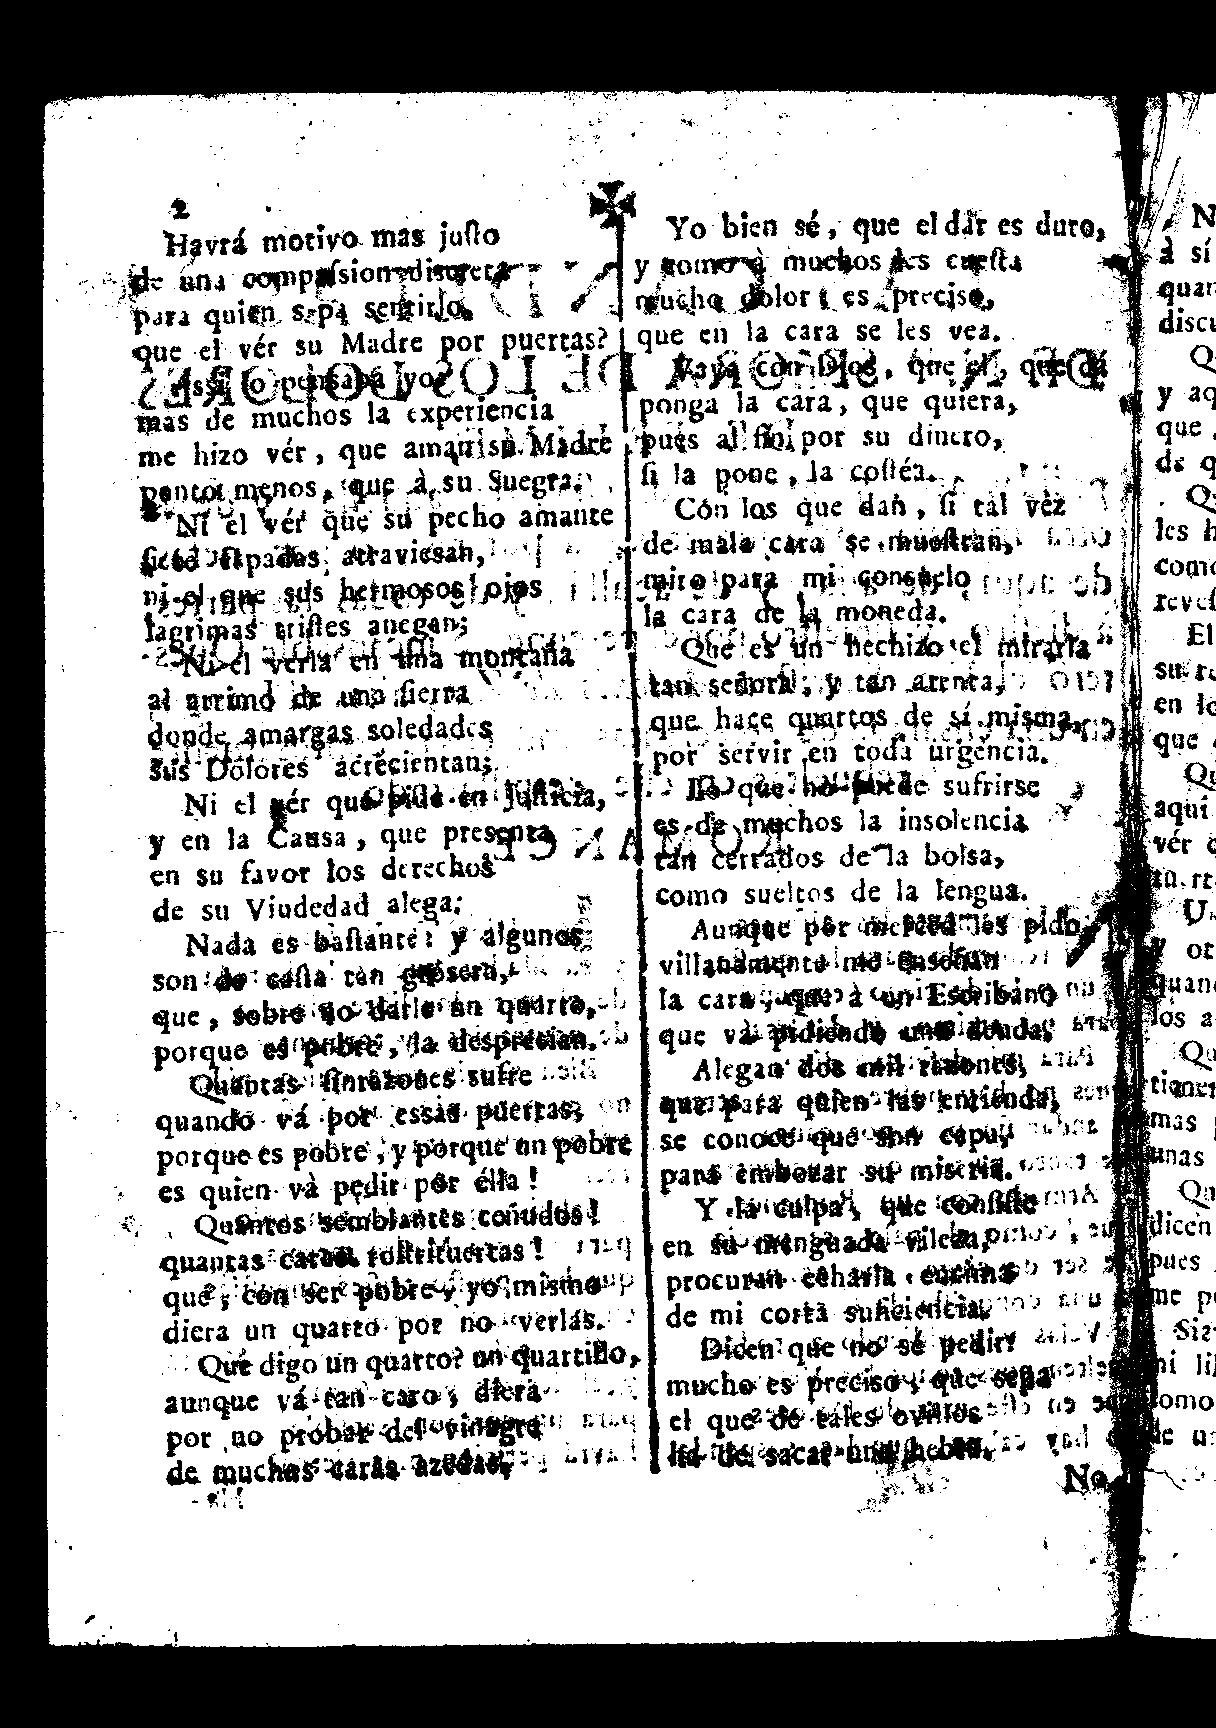 2
Havrá motivo mas juſto
de una compaſsion discreta
para quien sepa sentirlo,
que el vér su Madre por puertas?
Assi lo pensaba yo;
mas de muchos la experiencia
me hizo vér, que aman su Madre
poco menos, que à su Suegra.
Ni el vér que su pecho amante
ſiete espadas atraviesan,
ni el que sus hermosos ojos
lagrimas triſtes anegan;
Ni el verla en una montaña
al arrimo de una ſierra
donde amargas soledades
sus Dolores acrecientan;
Ni el vér que pide en Juſticia,
y en la Causa, que presenta
en su favor los derechos
de su Viudedad alega;
Nada es baſtante: y algunos
son de caſta tan grosera,
que, sobre no darle un quarto,
porque es pobre, la desprecian.
Quantas ſinrazones sufre
quando vá por essas puertas;
porque es pobre, y porque un pobre
es quien và pedir por élla!
Quantos semblantes ceñudos!
quantas caras roſtrituertas!
que, con ser pobre, yo mismo
diera un quarto por no verlas.
Qué digo un quarto? un quartillo,
aunque vá tan caro, diera
por no probar del vinagre
de muchas caras azedas,
Yo bien sé, que el dar es duro,
y como à muchos les cueſta
mucho dolor; es preciso,
que en la cara se les vea.
Vaya con Dios, que el, que dá
ponga la cara, que quiera,
pues al fin por su dinero,
ſi la pone, la coſtéa.
Con los que dan, ſi tal vez
de mala cara se mueſtran,
miro para mi consuelo
la cara de la moneda.
Que es un hechizo el mirarla
tan señora, y tan atenta,
que hace quartos de sí misma,
por servir en toda urgencia.
Lo que no puede sufrirse
es de muchos la insolencia
tan cerrados de la bolsa,
como sueltos de la lengua.
Aunque por merced les pido,
villanamente me enseñan
la cara, que à un Escribano
que và pidiendo una deuda.
Alegan dos mil razones,
que para quien las entienda,
se conoce que son capa,
para embozar su miseria.
Y la culpa, que conſiſte
en su menguada vileza,
procuran echarla encima
de mi corta suficiencia.
Dicen que no sé pedir:
mucho es preciso, que sepa
el que de tales ovillos
ha de sacar una hebra.
No